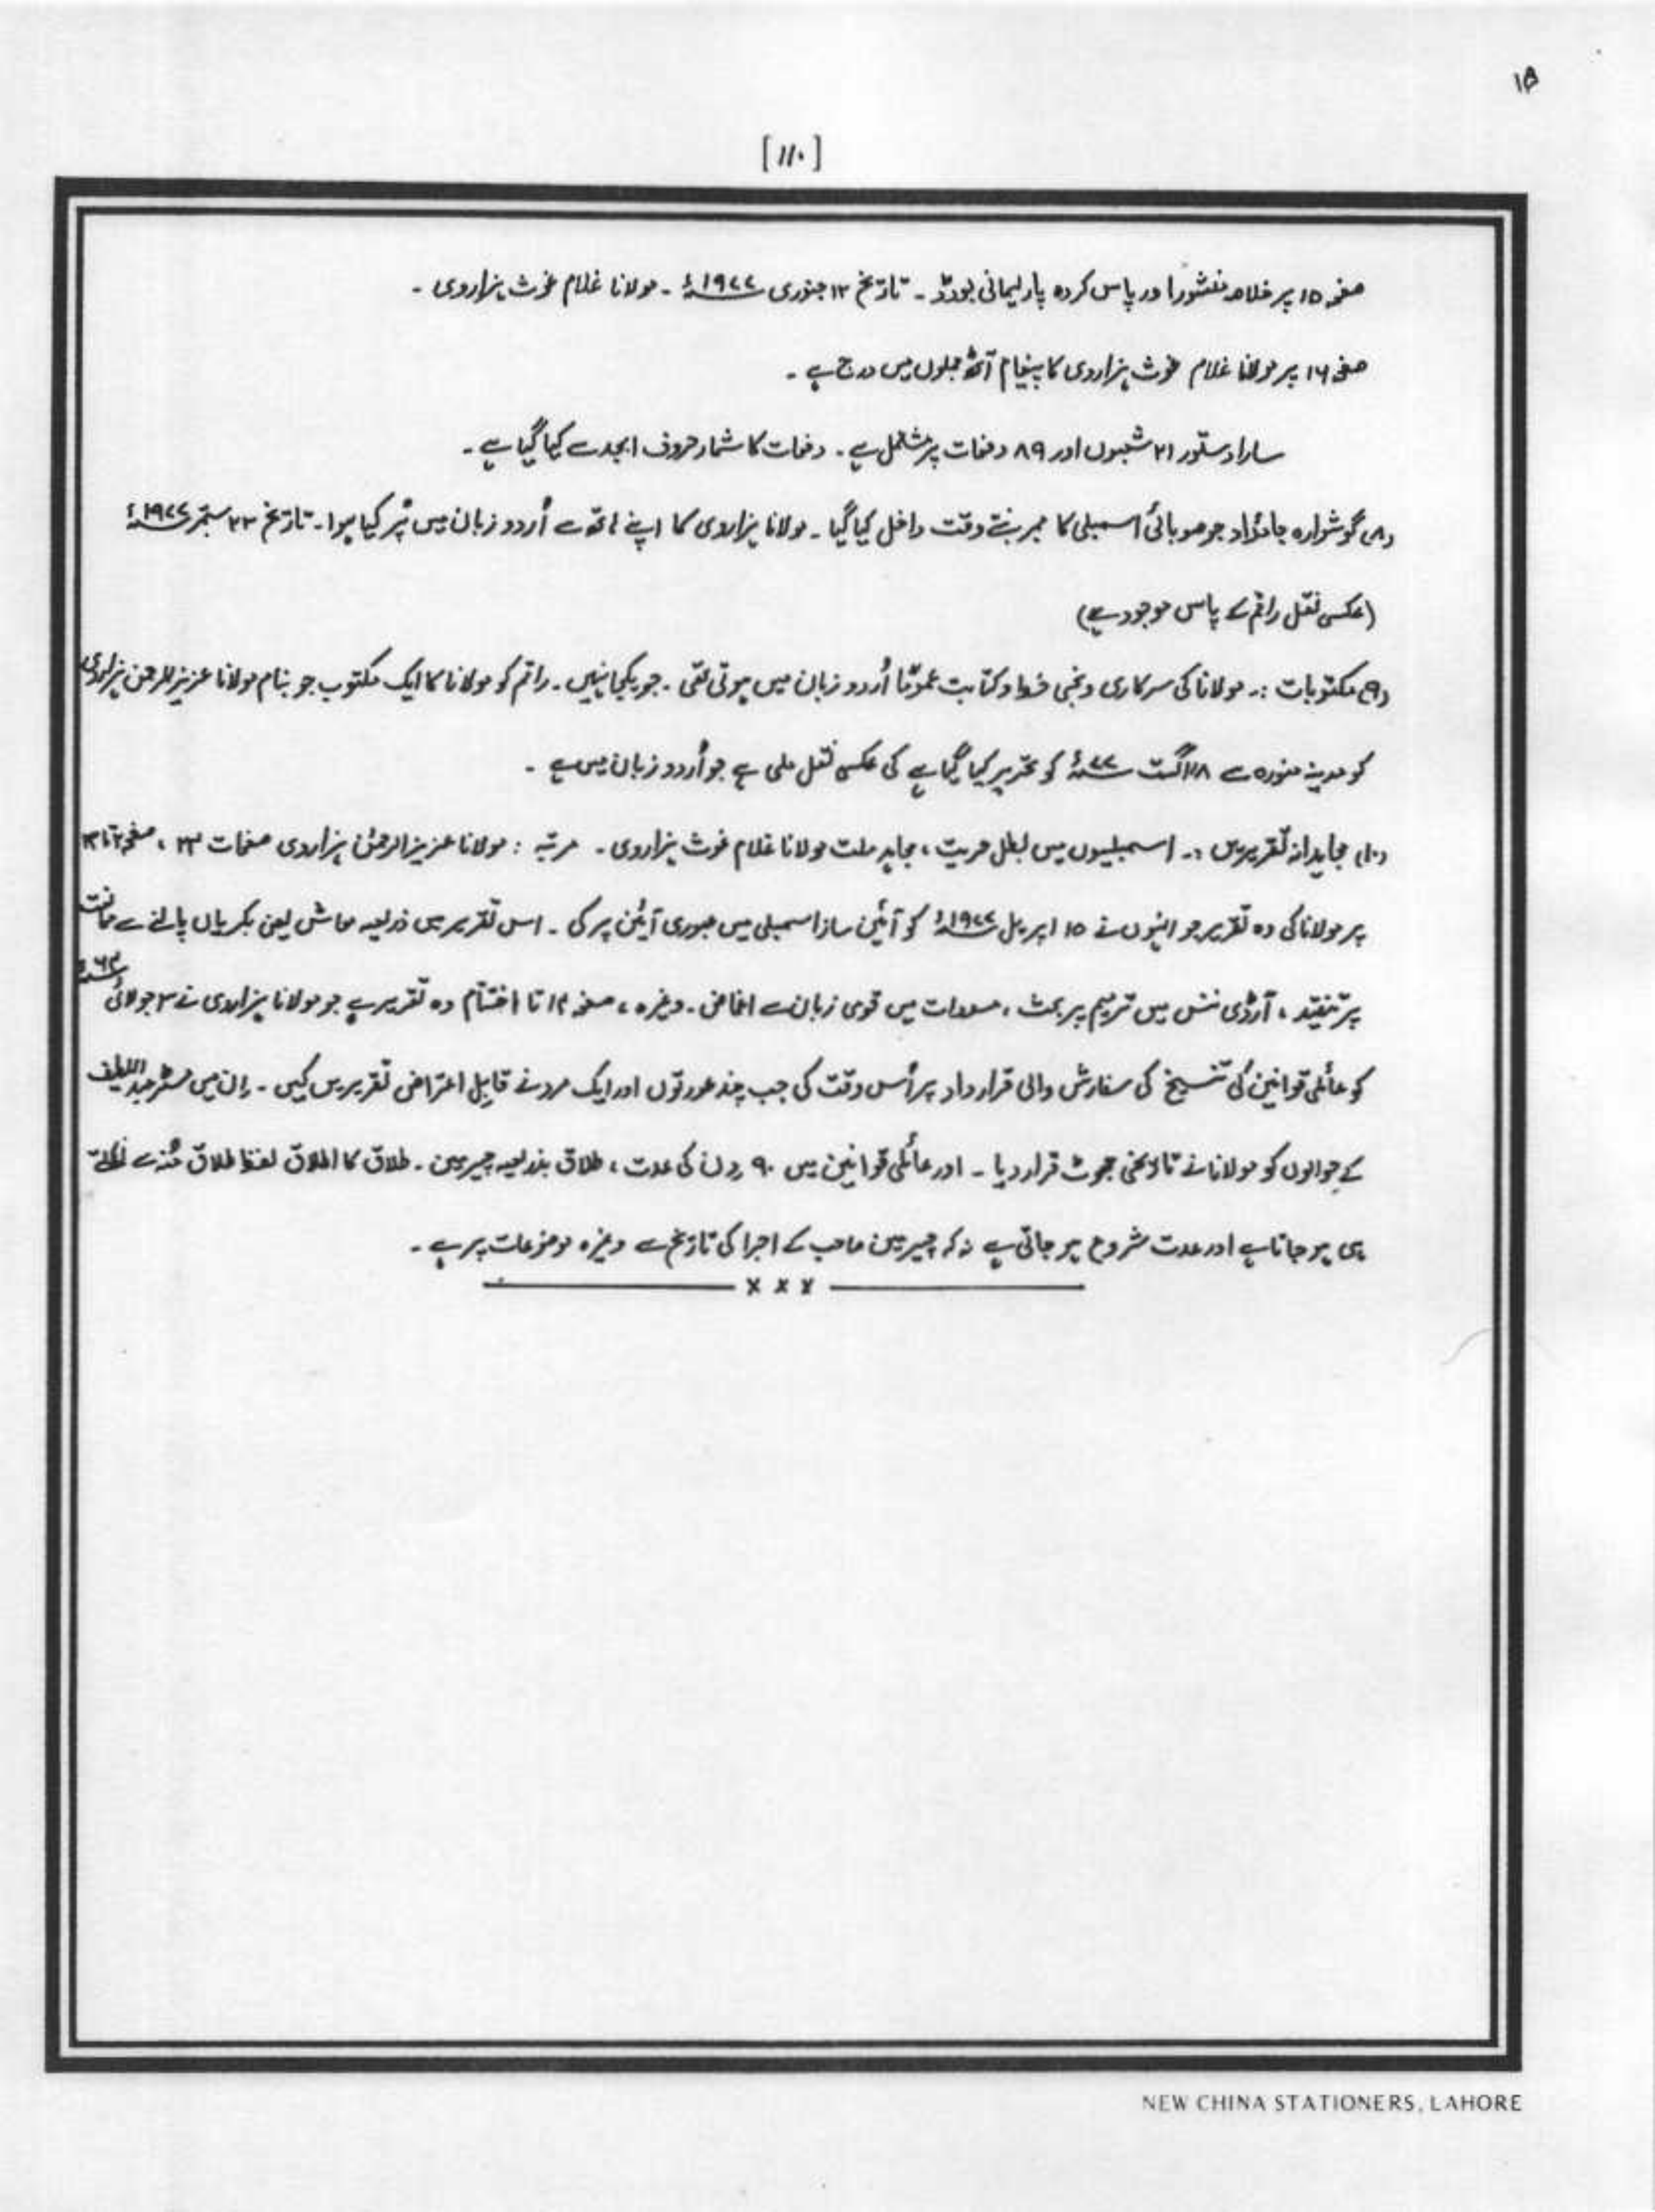 ۱۵
[۱۱۰]
صفحہ ۱۵ پر خلاصہ منشور اور پاس کردہ پارلیمانی بورڈ ۔ تاریخ ۱۳ جنوری ۱۹۷۷ء ۔ مولانا غلام غوث ہزاروی ۔
صفحہ ۱۶ پر مولانا غلام غوث ہزاروی کا پیغام آٹھ جملوں میں درج ہے ۔
سارا دستور ۲۱ شعبوں اور ۸۹ دفعات پر مشتمل ہے ۔ دفعات کا شمار حروف ابجد سے کیا گیا ہے ۔
(۸) گوشوارہ جائداد جو صوبائی اسمبلی کا ممبر بنتے وقت داخل کیا گیا ۔ مولانا ہزاروی کا اپنے ہاتھ سے اُردو زبان میں پُر کیا ہوا ۔ تاریخ ۲۳ ستمبر ۱۹۷۷ء
(عکسی نقل راقم کے پاس موجود ہے)
(۹) مکتوبات :۔ مولانا کی سرکاری و نجی خط و کتابت عموماً اُردو زبان میں ہوتی تھی ۔ جو یکجا نہیں ۔ راقم کو مولانا کا ایک مکتوب جو بنام مولانا عزیز الرحمن ہزاروی
کو مدینہ منورہ سے ۱۸ اگست ۷۷ء کو تحریر کیا گیا ہے کی عکسی نقل ملی ہے جو اُردو زبان میں ہے ۔
(۱۰) مجاہدانہ تقریریں :۔ اسمبلیوں میں بطل حریت ، مجاہد ملت مولانا غلام غوث ہزاروی ۔ مرتبہ : مولانا عزیز الرحمٰن ہزاروی صفحات ۲۳ ، صفحہ ۲ تا ۱۳
پر مولانا کی وہ تقریر جو انہوں نے ۱۵ اپریل ۱۹۷۲ء کو آئین ساز اسمبلی میں عبوری آئین پر کی ۔ اس تقریر میں ذریعہ معاش یعنی بکریاں پالنے سے ممانعت
پر تنقید ، آرڈی ننس میں ترمیم پر بحث ، مسودات میں قومی زبان سے اغماض ۔ وغیرہ ، صفحہ ۱۴ تا اختتام وہ تقریر ہے جو مولانا ہزاروی نے ۳ جولائی ۶۳ء
کو عائلی قوانین کی تنسیخ کی سفارش والی قرارداد پر اُس وقت کی جب چند عورتوں اور ایک مرد نے قابلِ اعتراض تقریریں کیں ۔ اِن میں مسٹر عبداللطیف
کے حوالوں کو مولانا نے تاریخی جھوٹ قرار دیا ۔ اور عائلی قوانین میں ۹۰ دن کی عدت ، طلاق بذریعہ چیرمین ۔ طلاق کا اطلاق لفظ طلاق مُنہ سے نکلتے
ہی ہو جاتا ہے اور عدت شروع ہو جاتی ہے نہ کہ چیرمین صاحب کے اجرا کی تاریخ سے وغیرہ موضوعات پر ہے ۔
x x x
NEW CHINA STATIONERS, LAHORE